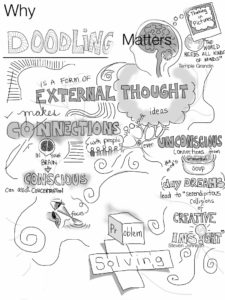 Why
DOODLING Matters
Thinking
in
Pictures
WORLD
NEEDS ALL KINDS
OF MINDS"
Temple Grandin
IS A FORM OF
EXTERNAL THOUGHT
makes
ideas
CONNECTIONS
with people
over
UNCONSCIOUS
Connections from
IN YOUR
BRAIN
soup
CONSCIOUS
can assist Concentration
day DREAMS
lead to "serendipitous
collisions
focus
CREATIVE
INSIGHT
Steven
Problem
Solving